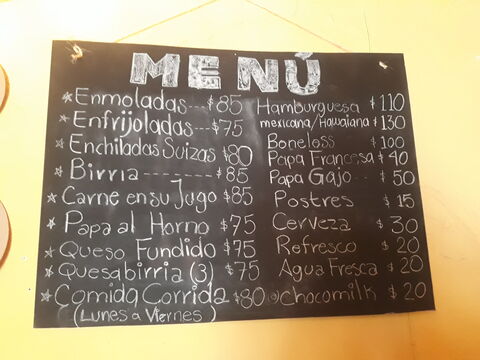 MENÚ
Enmoladas---$85
Enfrijoladas----$75
Enchiladas Suizas $80
Birria -------$85
Carne en su Jugo $85
Papa al Horno $75
Queso Fundido $75
Quesabirria (3) $75
Comida Corrida $80
(Lunes a Viernes)
Hamburguesa $110
mexicana/Hawaiana $130
Boneless $100
Papa Francesa $40
Papa Gajo-- $50
Postres $15
Cerveza $30
Refresco $20
Agua Fresca $20
Chocomilk $20